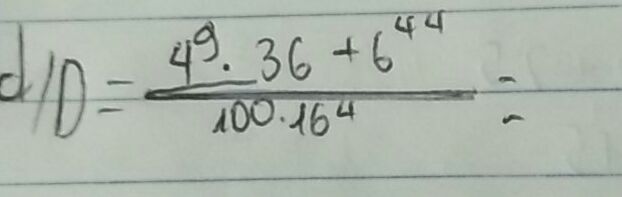 d/D = \frac{4^9 \cdot 36 + 6^{44}}{100 \cdot 16^4} =